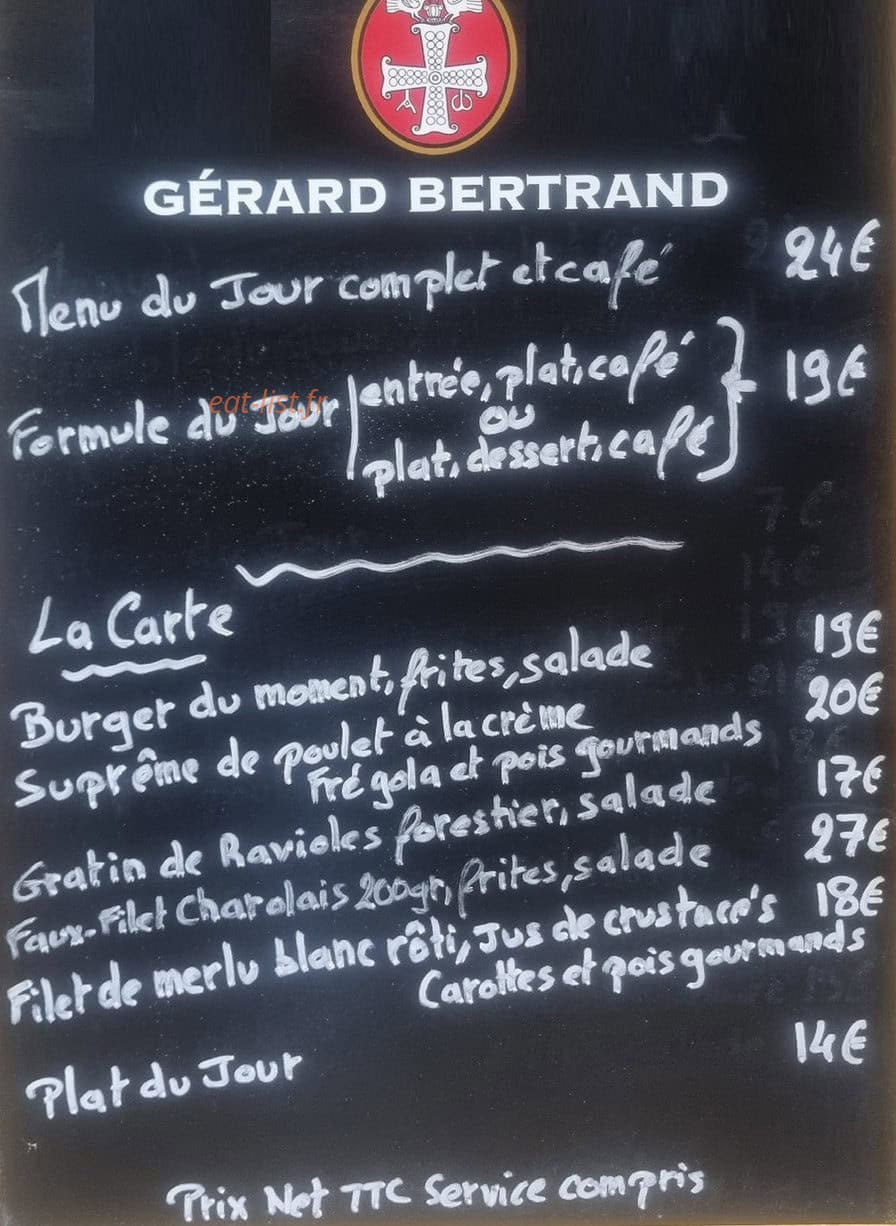 GÉRARD BERTRAND
Menu du Jour complet et café 24€
Formule du Jour entrée, plat, café
ou
plat, dessert, café 19€
eat-list.fr
La Carte
Burger du moment, frites, salade 19€
Suprême de poulet à la crème 20€
Frégola et pois gourmands
Gratin de Ravioles forestier, salade 17€
Faux-Filet Charolais 200gr, frites, salade 27€
Filet de merlu blanc rôti, Jus de crustacés 18€
Carottes et pois gourmands
Plat du Jour 14€
Prix Net TTC Service compris